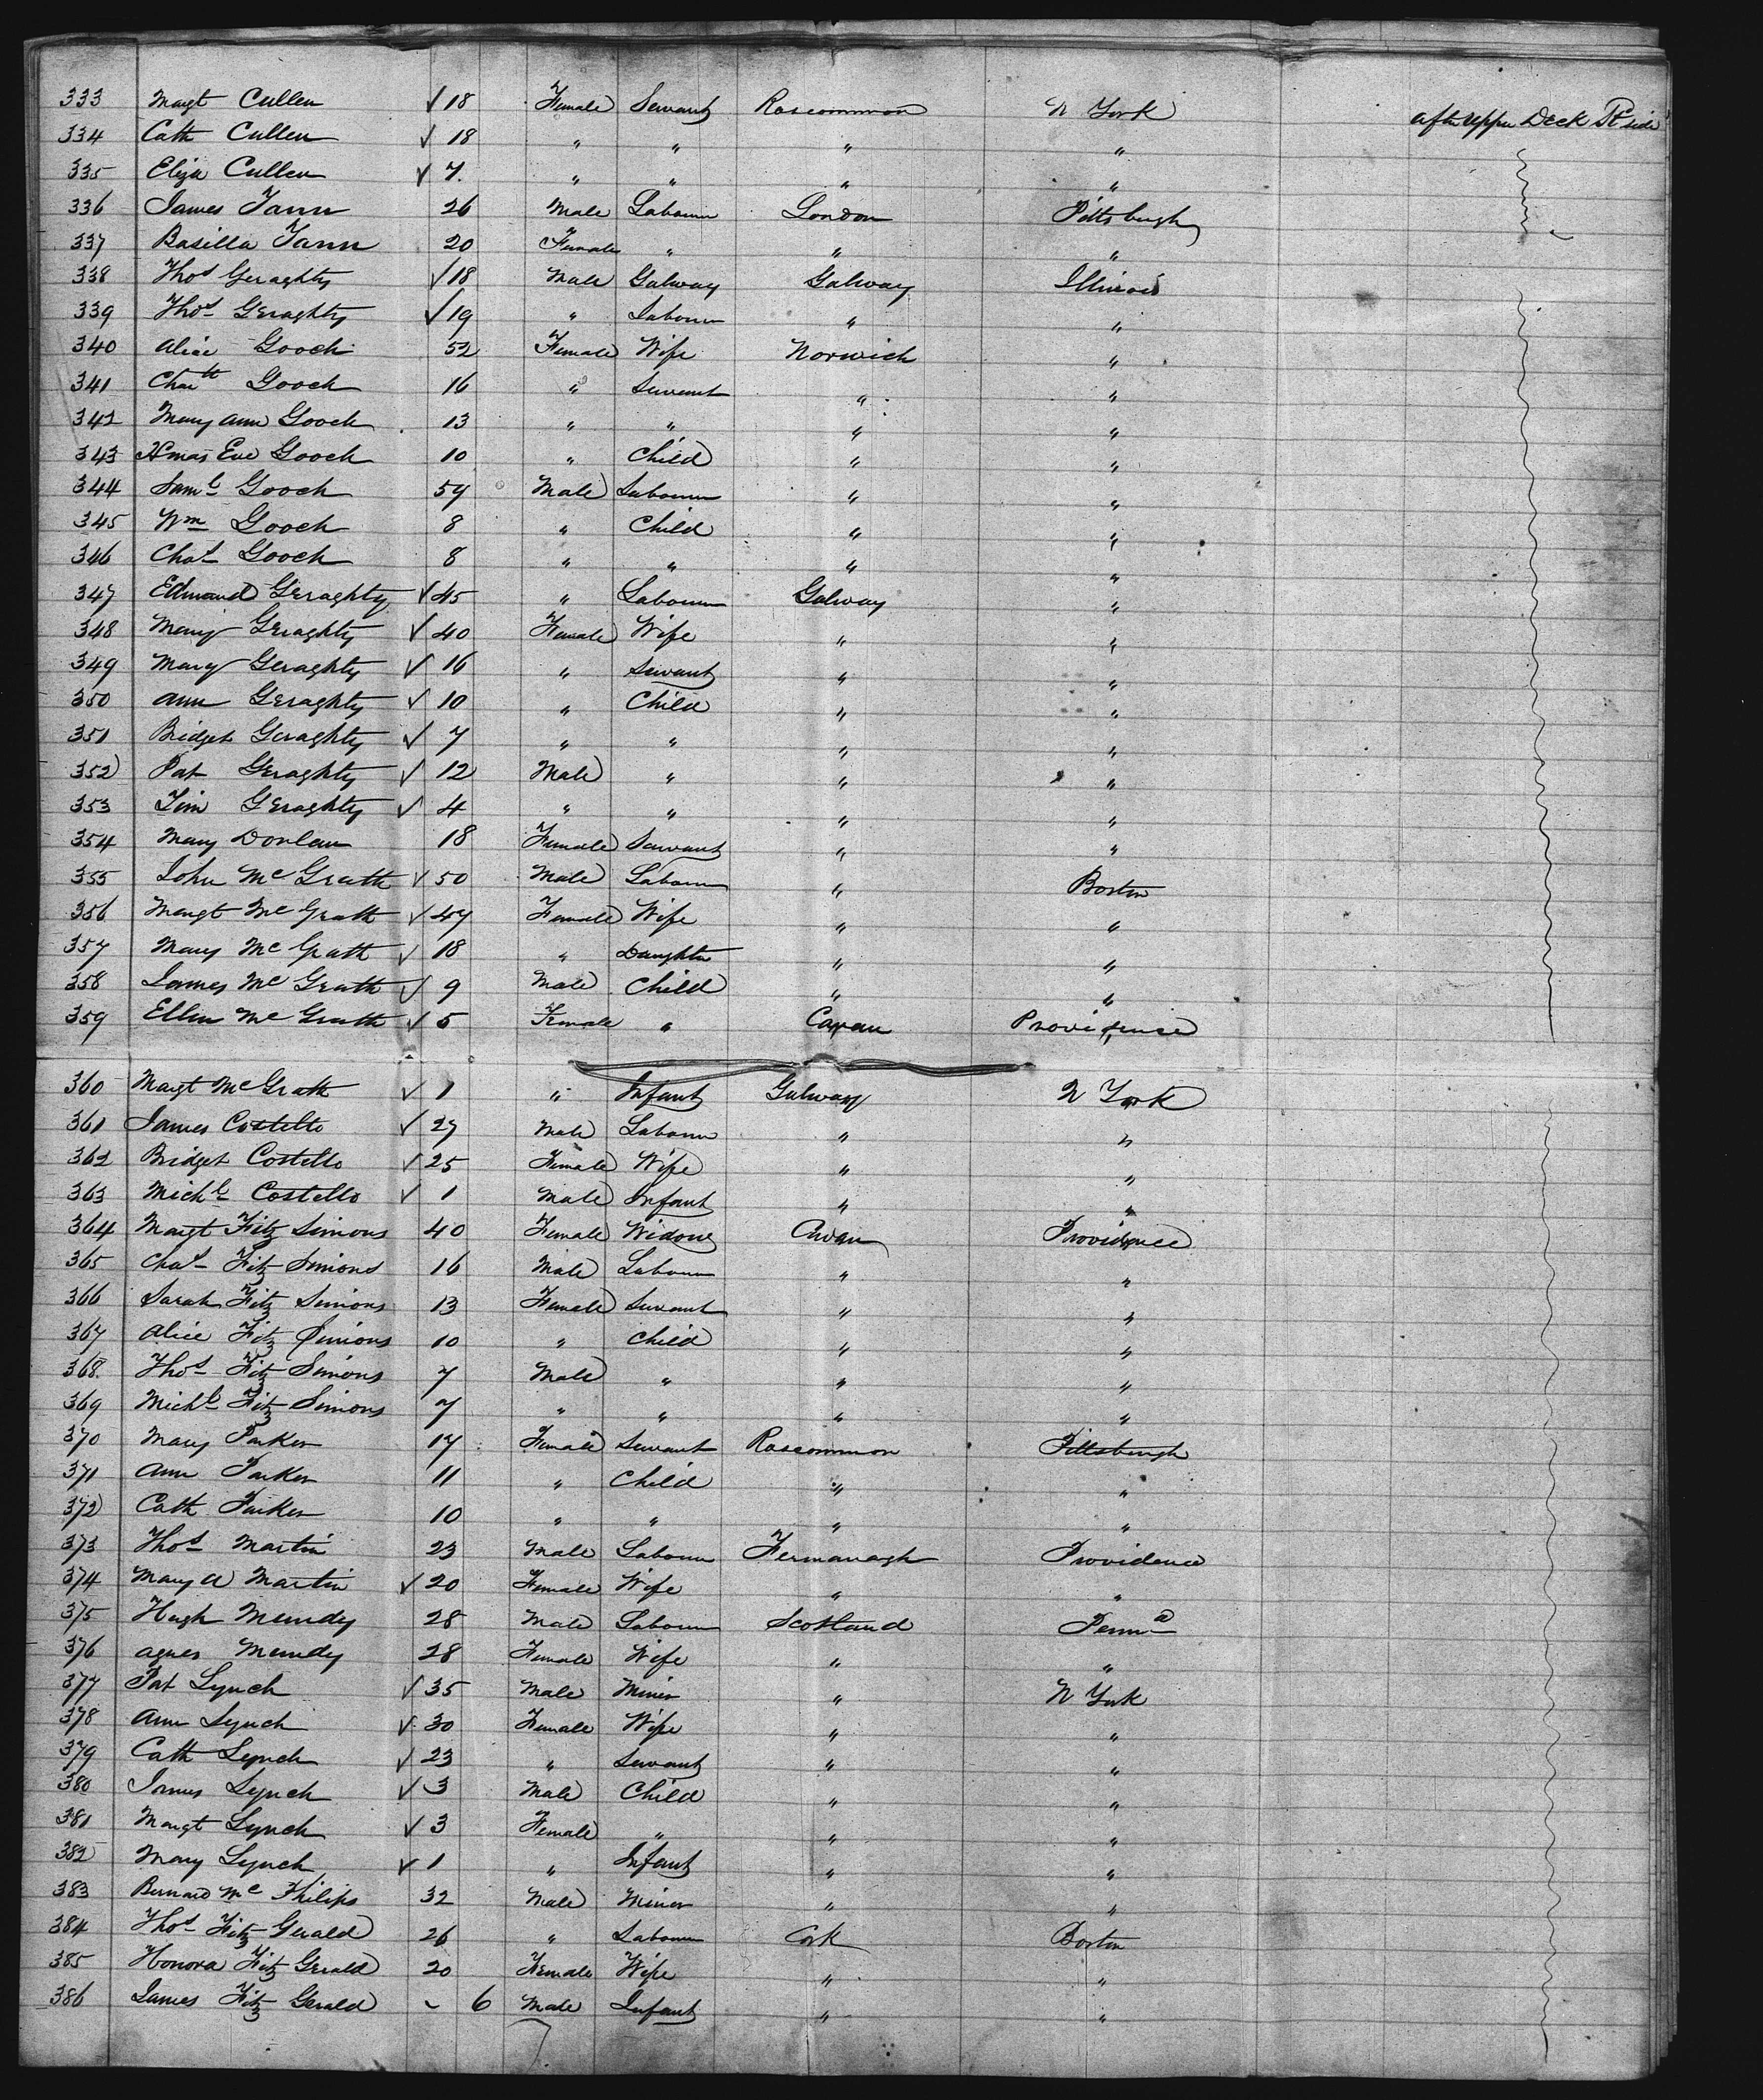 333 Margt Cullen √ 18 Female Servant Roscommon N York after upper Deck Pt side
334 Cath Cullen √ 18 " " " "
335 Eliza Cullen √ 7. " " " "
336 James Fann 26 Male Labourer London Pittsburgh
337 Basilla Fann 20 Female " " "
338 Thos Geraghty √ 18 Male Galway Galway Illinois
339 Thos Geraghty √ 19 " Labourer " "
340 Alice Gooch 52 Female Wife Norwich "
341 Chartt Gooch 16 " Servant " "
342 Mary Ann Gooch 13 " " " "
343 Xmas Eve Gooch 10 " Child " "
344 Saml Gooch 59 Male Labourer " "
345 Wm Gooch 8 " Child " "
346 Chas Gooch 8 " " " "
347 Edmund Geraghty √ 45 " Labourer Galway "
348 Mary Geraghty √ 40 Female Wife " "
349 Mary Geraghty √ 16 " Servant " "
350 Ann Geraghty √ 10 " Child " "
351 Bridget Geraghty √ 7 " " " "
352 Pat Geraghty √ 12 Male " " "
353 Tim Geraghty √ 4 " " " "
354 Mary Donlan 18 Female Servant " "
355 John McGrath √ 50 Male Labourer " Boston
356 Margt McGrath √ 47 Female Wife " "
357 Mary McGrath √ 18 " Daughter " "
358 James McGrath √ 9 Male Child " "
359 Ellen McGrath √ 5 Female " Cavan Providence
360 Margt McGrath √ 1 " Infant Galway N York
361 James Costello √ 27 Male Labourer " "
362 Bridget Costello √ 25 Female Wife " "
363 Michl Costello √ 1 Male Infant " "
364 Margt Fitz Simons 40 Female Widow Cavan Providence
365 Chas Fitz Simons 16 Male Labourer " "
366 Sarah Fitz Simons 13 Female Servant " "
367 Alice Fitz Simons 10 " Child " "
368. Thos Fitz Simons 7 Male " " "
369 Michl Fitz Simons 7 " " " "
370 Mary Parker 17 Female Servant Roscommon Pittsburgh
371 Ann Parker 11 " Child " "
372 Cath Parker 10 " " " "
373 Thos Martin 23 Male Labourer Fermanagh Providence
374 Mary A Martin √ 20 Female Wife " "
375 Hugh Mundy 28 Male Labourer Scotland Penna
376 Agnes Mundy 28 Female Wife " "
377 Pat Lynch √ 35 Male Miner " N York
378 Ann Lynch √ 30 Female Wife " "
379 Cath Lynch √ 23 " Servant " "
380 James Lynch √ 3 Male Child " "
381 Margt Lynch √ 3 Female " " "
382 Mary Lynch √ 1 " Infant " "
383 Bernard Mc Philips 32 Male Miner " "
384 Thos Fitz Gerald 26 " Labourer Cork Boston
385 Honora Fitz Gerald 20 Female Wife " "
386 James Fitz Gerald - 6 Male Infant " "